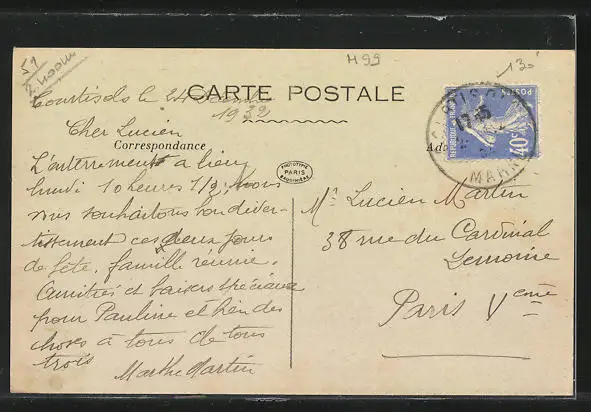 51
M 99
130
CARTE POSTALE
Courtisols le 24
1932
Cher Lucien
Correspondance
L'enterrement a lieu
lundi 10 heures 1/2. Nous
vous souhaitons bon diver-
tissement ces deux jours
de fête, famille réunie.
Amitiés et baisers spéciaux
pour Pauline et bien des
choses à tous de tous
trois
Marthe Martin
PHOTOTYPIE
PARIS
POSTES
REPUBLIQUE FRANÇAISE
40c
MARNE
Mr Lucien Martin
38 rue du Cardinal
Lemoine
Paris Veme